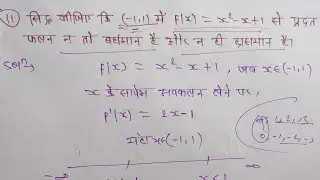 (11) सिद्ध कीजिए कि (-1,1) में f(x) = x²-x+1 से प्रदत्त
फलन न तो वर्धमान है और न ही ह्रासमान है।
f(x) = x²-x+1, जब x∈(-1,1)
x के सापेक्ष अवकलन होने पर,
f'(x) = 2x-1
x∈(-1,1)
-∞ x<1 ∞